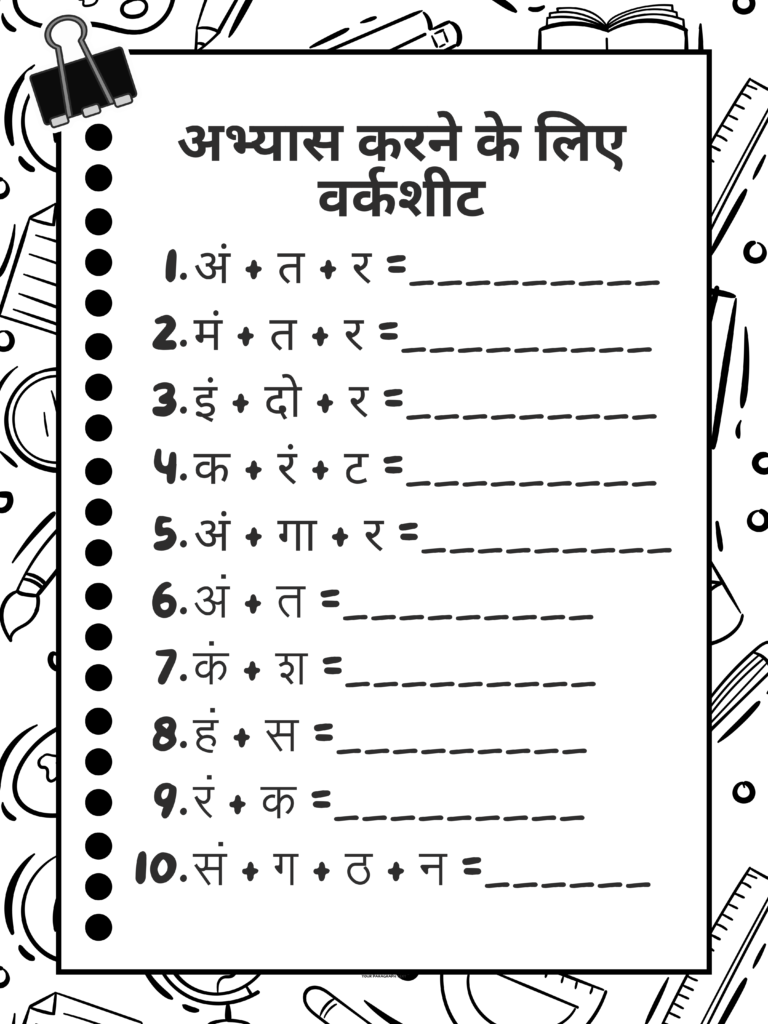 अभ्यास करने के लिए
वर्कशीट
1. अं + त + र =_________
2. मं + त + र =_________
3. इं + दो + र =_________
4. क + रं + ट =_________
5. अं + गा + र =_________
6. अं + त =_________
7. कं + श =_________
8. हं + स =_________
9. रं + क =_________
10. सं + ग + ठ + न =______
YOUR PARAGRAPH